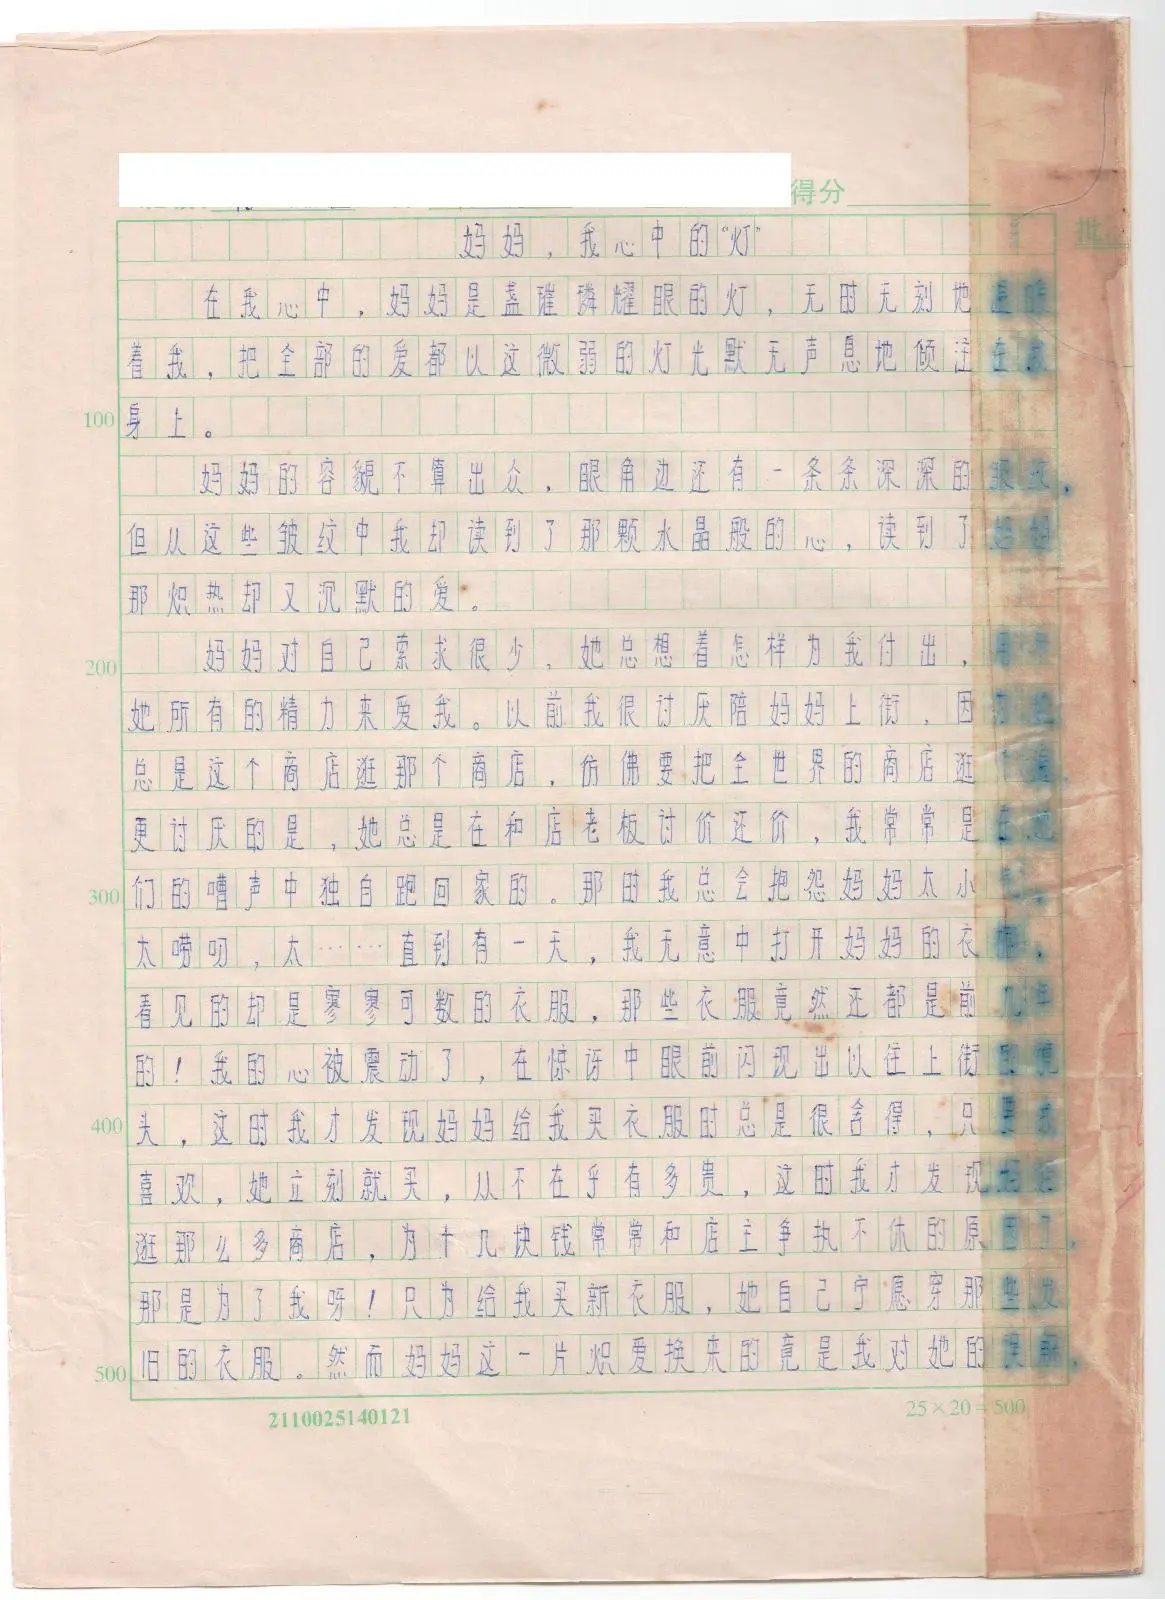 得分
批
妈妈，我心中的“灯”
在我心中，妈妈是盏璀璨耀眼的灯，无时无刻地温暖
着我，把全部的爱都以这微弱的灯光默无声息地倾注在我
100
身上。
妈妈的容貌不算出众，眼角边还有一条条深深的皱纹，
但从这些皱纹中我却读到了那颗水晶般的心，读到了妈妈
那炽热却又沉默的爱。
200
妈妈对自己索求很少，她总想着怎样为我付出，用尽
她所有的精力来爱我。以前我很讨厌陪妈妈上街，因为她
总是这个商店逛那个商店，仿佛要把全世界的商店逛
更讨厌的是，她总是在和店老板讨价还价，我常常是在他
300
们的嘈声中独自跑回家的。那时我总会抱怨妈妈太小气，
太唠叨，太……直到有一天，我无意中打开妈妈的衣柜，
看见的却是寥寥可数的衣服，那些衣服竟然还都是前几年
的！我的心被震动了，在惊讶中眼前闪现出以往上街的镜
400
头，这时我才发现妈妈给我买衣服时总是很舍得，只要我
喜欢，她立刻就买，从不在乎有多贵，这时我才发现妈妈
逛那么多商店，为十几块钱常常和店主争执不休的原因了，
那是为了我呀！只为给我买新衣服，她自己宁愿穿那些发
500
旧的衣服。然而妈妈这一片炽爱换来的竟是我对她的
2110025140121
25×20=500